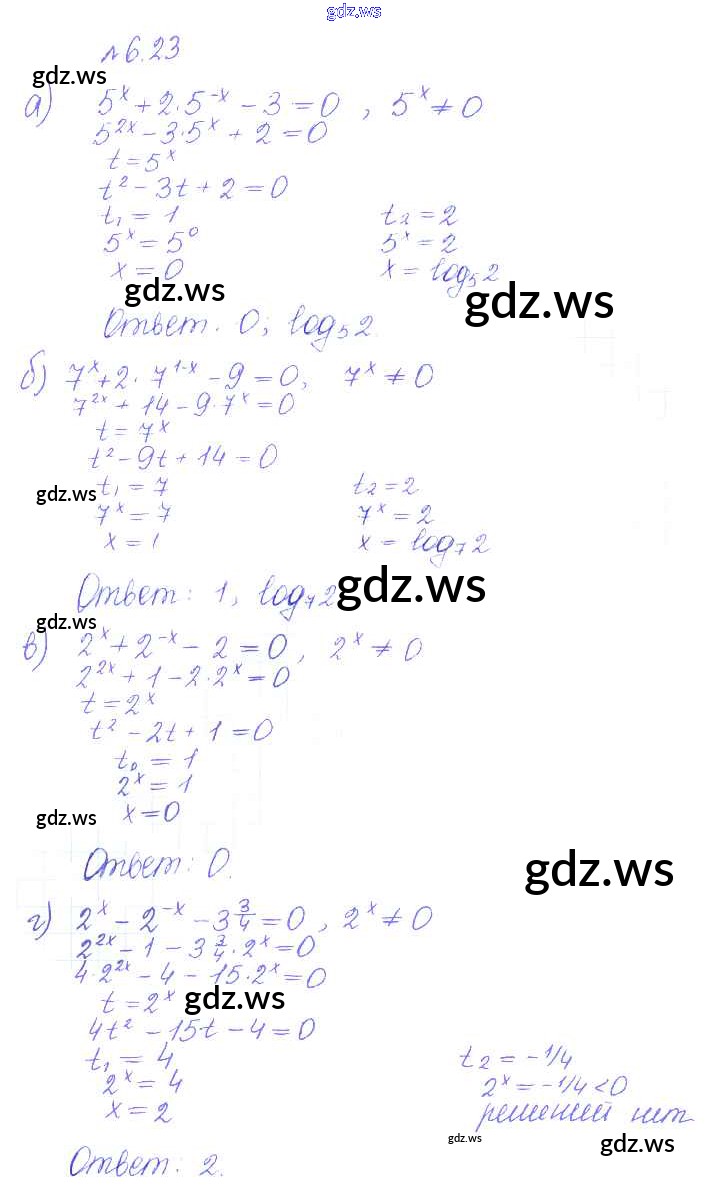 gdz.ws
№ 6.23
gdz.ws
а) 5ˣ + 2·5⁻ˣ − 3 = 0 , 5ˣ ≠ 0
5²ˣ − 3·5ˣ + 2 = 0
t = 5ˣ
t² − 3t + 2 = 0
t₁ = 1 t₂ = 2
5ˣ = 5⁰ 5ˣ = 2
x = 0 x = log₅2
gdz.ws gdz.ws
Ответ. 0; log₅2.
б) 7ˣ + 2·7¹⁻ˣ − 9 = 0, 7ˣ ≠ 0
7²ˣ + 14 − 9·7ˣ = 0
t = 7ˣ
t² − 9t + 14 = 0
gdz.ws t₁ = 7 t₂ = 2
7ˣ = 7 7ˣ = 2
x = 1 x = log₇2
Ответ: 1, log₇2 gdz.ws
gdz.ws
в) 2ˣ + 2⁻ˣ − 2 = 0, 2ˣ ≠ 0
2²ˣ + 1 − 2·2ˣ = 0
t = 2ˣ
t² − 2t + 1 = 0
t₀ = 1
2ˣ = 1
x = 0
gdz.ws
Ответ: 0. gdz.ws
г) 2ˣ − 2⁻ˣ − 3 3/4 = 0 , 2ˣ ≠ 0
2²ˣ − 1 − 3 3/4·2ˣ = 0
4·2²ˣ − 4 − 15·2ˣ = 0
t = 2ˣ gdz.ws
4t² − 15t − 4 = 0
t₁ = 4 t₂ = −1/4
2ˣ = 4 2ˣ = −1/4 < 0
x = 2 решений нет
gdz.ws gdz.ws
Ответ: 2.